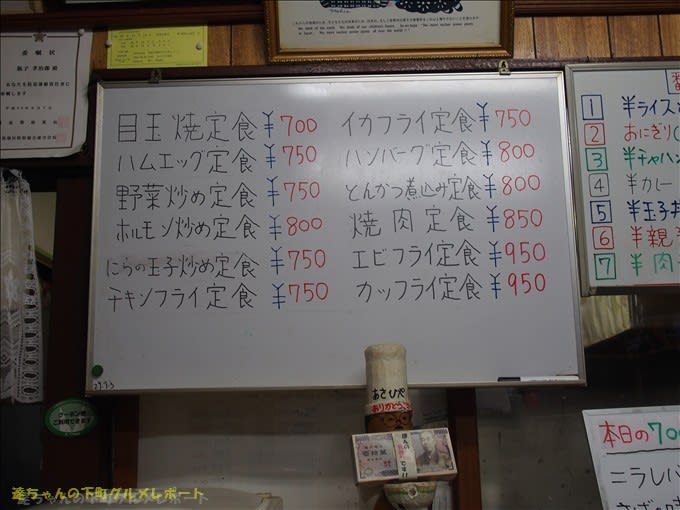 委嘱状
目玉焼定食 ¥700
ハムエッグ定食 ¥750
野菜炒め定食 ¥750
ホルモン炒め定食 ¥800
にらの玉子炒め定食 ¥750
チキンフライ定食 ¥750
イカフライ定食 ¥750
ハンバーグ定食 ¥800
とんかつ煮込み定食 ¥800
焼肉定食 ¥850
エビフライ定食 ¥950
カツフライ定食 ¥950
27.7.3
1 半ライス
2 おにぎり(
3 半チャハン
4 半カレー
5 半玉子丼
6 半親子
7 半肉
クーポンが
ご利用できます
あさひや
ありがとう
壱億円
ほんの気持ちです!!
本日の700
ニラレバ
達ちゃんの下町グルメレポート